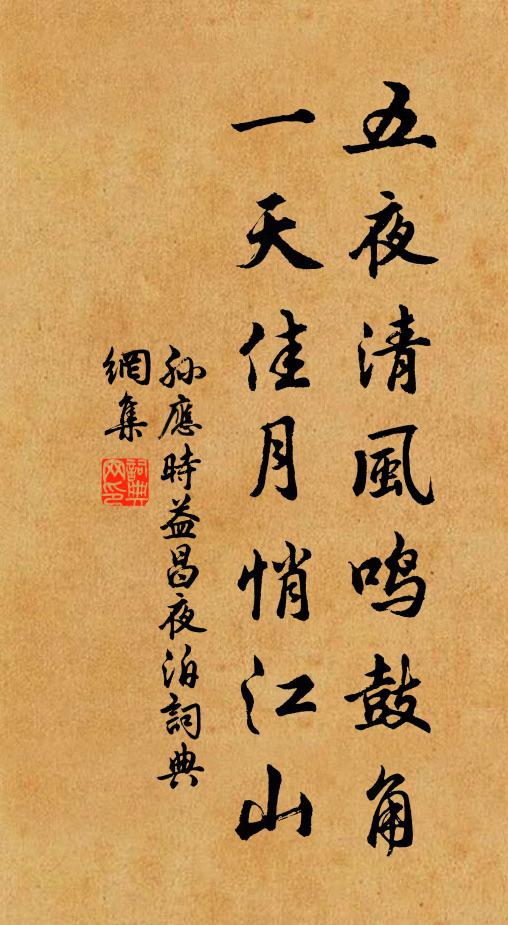 五夜清風鳴鼓角
一天佳月悄江山
孙應時益昌夜泊詞典
網集
詞典
网印